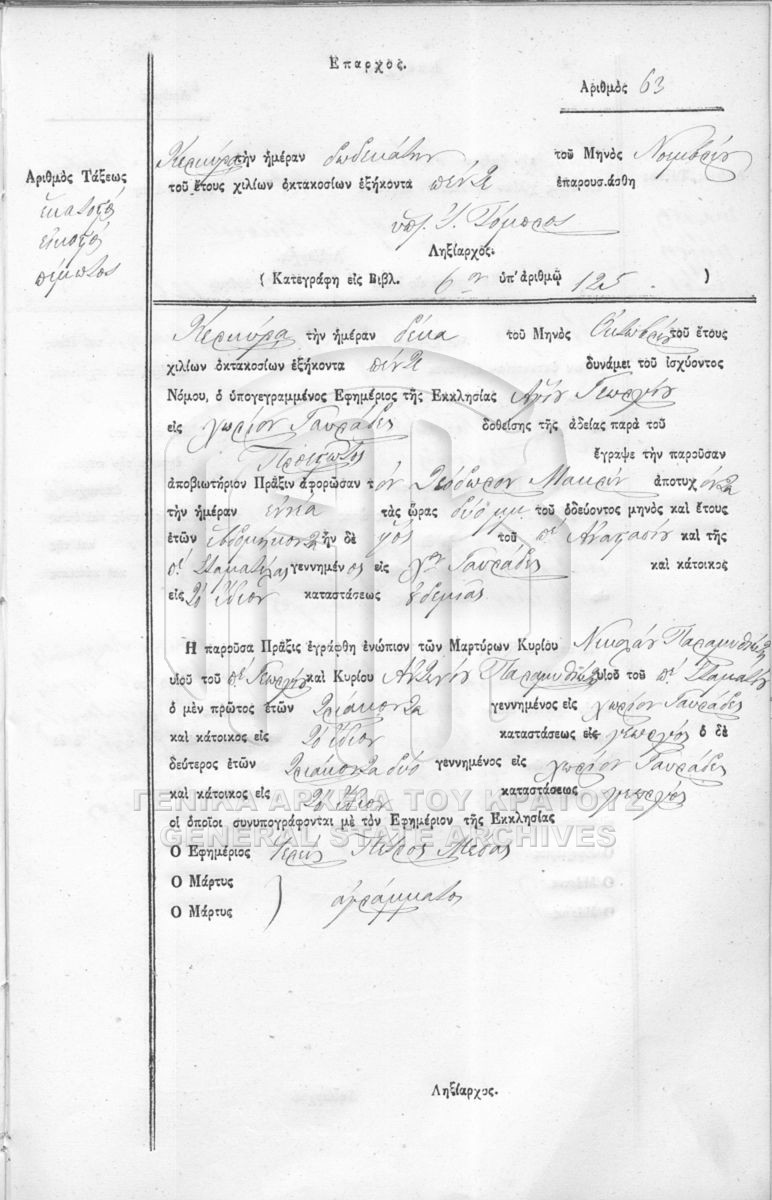 Επαρχὸς.
Αριθμὸς 63
Κερκύρα τὴν ἡμέραν δωδεκάτην τοῦ Μηνὸς Νοεμβρίου
Αριθμὸς Τάξεως
τοῦ ἔτους χιλίων ὀκτακοσίων ἑξήκοντα πέντε ἐπαρουσιάσθη
ἑκατοστὸς
εἰκοστὸς
πέμπτος
Ληξίαρχος.
( Κατεγράφη εἰς Βιβλ. 6ον ὑπ' ἀριθμῷ 125. )
Κερκύρα τὴν ἡμέραν δέκα τοῦ Μηνὸς Οκτωβρίου τοῦ ἔτους
χιλίων ὀκτακοσίων ἑξήκοντα πέντε δυνάμει τοῦ ἰσχύοντος
Νόμου, ὁ ὑπογεγραμμένος Εφημέριος τῆς Εκκλησίας Αγίου Γεωργίου
εἰς χωρίον Γαυράδες δοθείσης τῆς ἀδείας παρὰ τοῦ
ἔγραψε τὴν παροῦσαν
ἀποβιωτήριον Πρᾶξιν ἀφορῶσαν τὸν Θεόδωρον Μακρὴν ἀποτυχόντα
τὴν ἡμέραν ἐννέα τὰς ὥρας δύο μμ. τοῦ ὁδεύοντος μηνὸς καὶ ἔτους
ἐτῶν ἑβδομήκοντα ἦν δὲ υἱὸς τοῦ πέ Αναστασίου καὶ τῆς
πέ Σταματέλας γεννημένος εἰς χον Γαυράδες καὶ κάτοικος
εἰς τὸ ἴδιον καταστάσεως οὐδεμίας
Η παροῦσα Πρᾶξις ἐγράφθη ἐνώπιον τῶν Μαρτύρων Κυρίου Νικολάου Παραμυθιώτη
υἱοῦ τοῦ πέ Γεωργίου καὶ Κυρίου Αντωνίου Παραμυθιώτη υἱοῦ τοῦ πέ Σταμάτη
ὁ μὲν πρῶτος ἐτῶν τριάκοντα γεννημένος εἰς χωρίον Γαυράδες
καὶ κάτοικος εἰς τὸ ἴδιον καταστάσεως γεωργὸς ὁ δὲ
δεύτερος ἐτῶν τριάκοντα δύο γεννημένος εἰς χωρίον Γαυράδες
καὶ κάτοικος εἰς τὸ ἴδιον καταστάσεως γεωργὸς
οἱ ὁποῖοι συνυπογράφονται μὲ τὸν Εφημέριον τῆς Εκκλησίας
ΓΕΝΙΚΑ ΑΡΧΕΙΑ ΤΟΥ ΚΡΑΤΟΥΣ
GENERAL STATE ARCHIVES
Ο Εφημέριος Ιερεὺς Πέτρος Μέσας
Ο Μάρτυς
Ο Μάρτυς ἀγράμματοι
Ληξίαρχος.